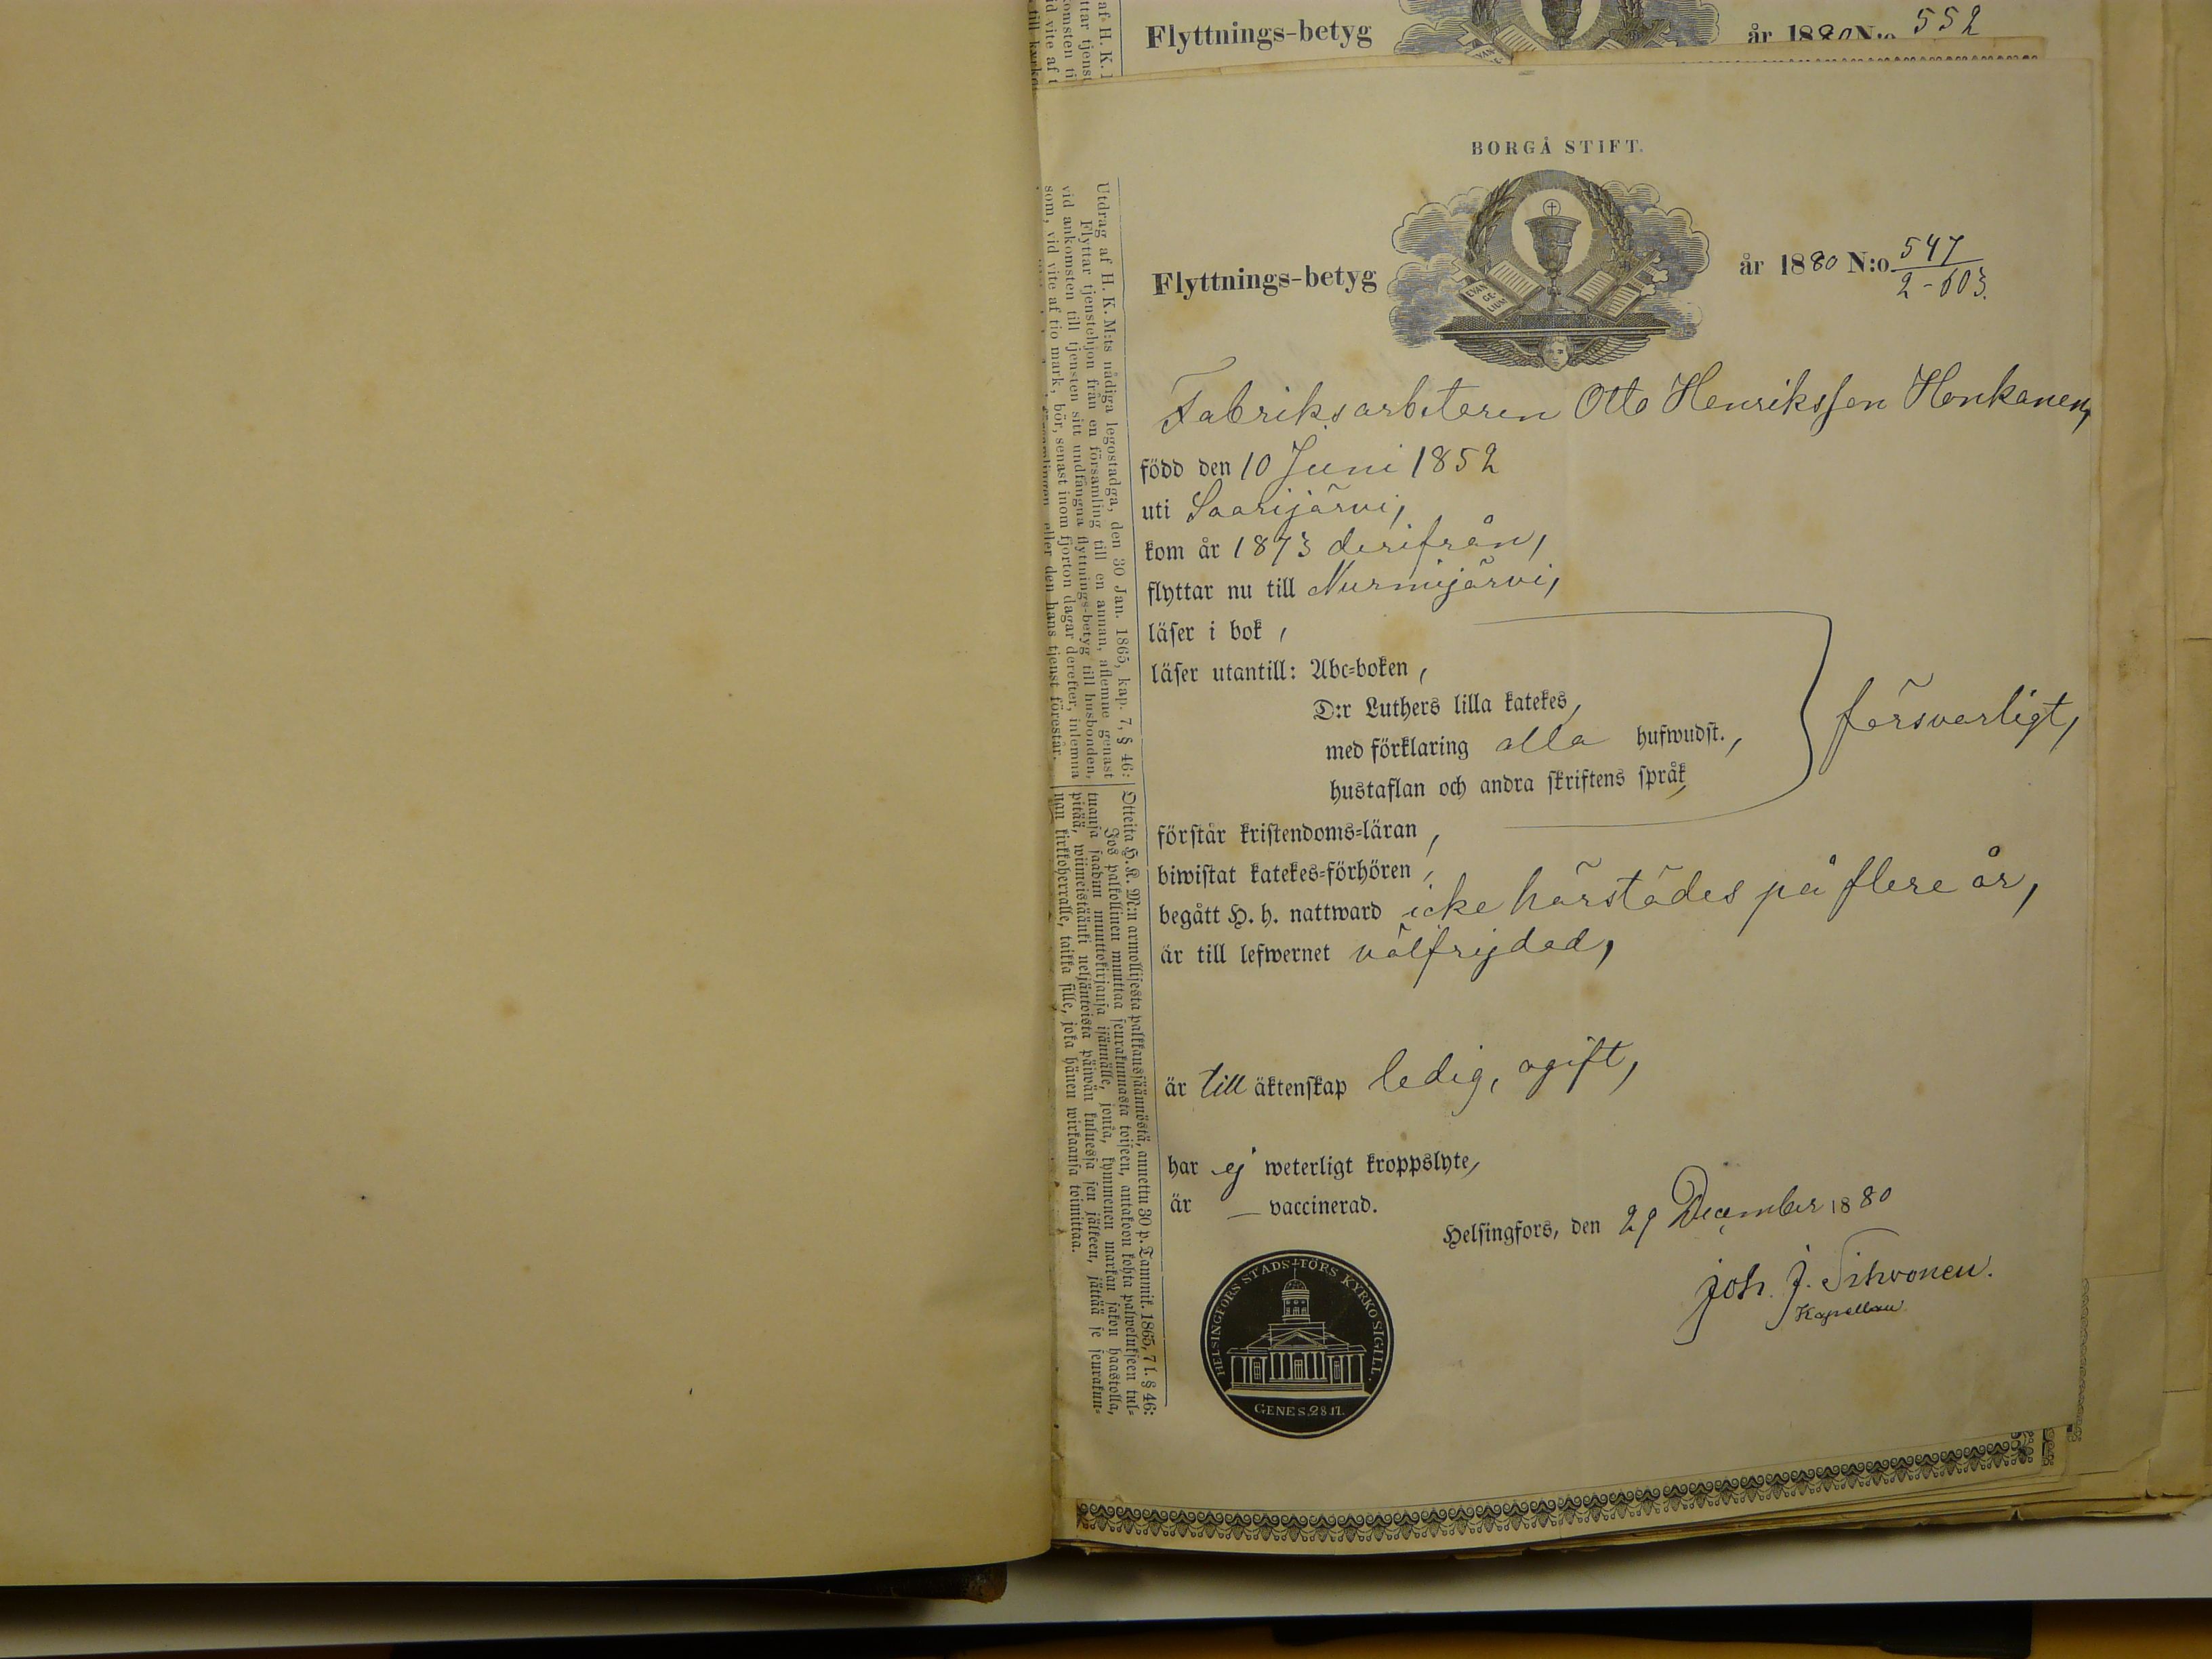 Flyttnings-betyg år 1880 N:o 552
BORGÅ STIFT.
EVAN
GE-
LIUM
Flyttnings-betyg år 1880 N:o 547
2-603.
Fabriksarbetaren Otto Henriksson Honkanen,
född den 10 Juni 1852
uti Saarijärvi,
kom år 1873 derifrån,
flyttar nu till Nurmijärvi,
läser i bok,
läser utantill: Abc-boken,
D:r Luthers lilla katekes,
med förklaring alla hufwudst.,
hustaflan och andra skriftens språk,
försvarligt,
förstår kristendoms-läran,
biwistat katekes-förhören,
begått H. h. nattward icke härstädes på flere år,
är till lefwernet välfrejdad,
är till äktenskap ledig, ogift,
har ej weterligt kroppslyte,
är — vaccinerad.
Helsingfors, den 29 December 1880
Joh. J. Sihvonen.
Kapellan.
HELSINGFORS STADS KYRKO SIGILL.
GENES. 28 17.
Utdrag af H. K. M:ts nådiga legostadga, den 30 Jan. 1865, kap. 7, § 46:
Flyttar tjenstehjon från en församling till en annan, aflemne genast
vid ankomsten till tjensten sitt undfångna flyttnings-betyg till husbonden,
som, vid vite af tio mark, bör, senast inom fjorton dagar derefter, inlemna
eller den hans tjenst förestår.
Otteita H. K. M:n armollisesta palkkaussäännöstä, annettu 30 p. Tammik. 1865, 7 l. § 46:
Jos palkollinen muuttaa seurakunnasta toiseen, antakoon kohta palwelukseen tul-
tuansa saadun muuttokirjansa isännälle, jonka, kymmenen markan sakon haastolla,
pitää, wiimeistäänki neljäntoista päiwän kuluessa sen jälkeen, jättää se seurakun-
nan kirkkoherralle, taikka sille, joka hänen wirkaansa toimittaa.